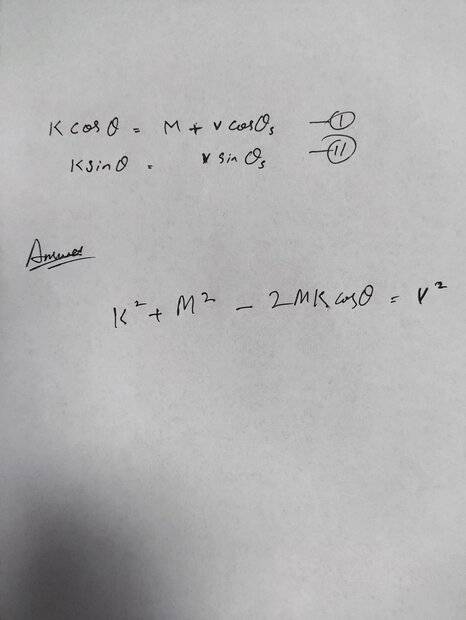 K cos θ = M + v cos θs —(I)
K sin θ = v sin θs —(II)
Answer
K² + M² - 2MK cos θ = v²